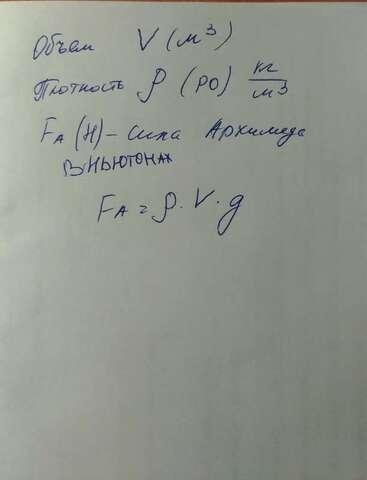 Объем V (м³)
Плотность ρ (РО) кг/м³
FA (Н) – сила Архимеда
В НЬЮТОНАХ
FA = ρ · V · g